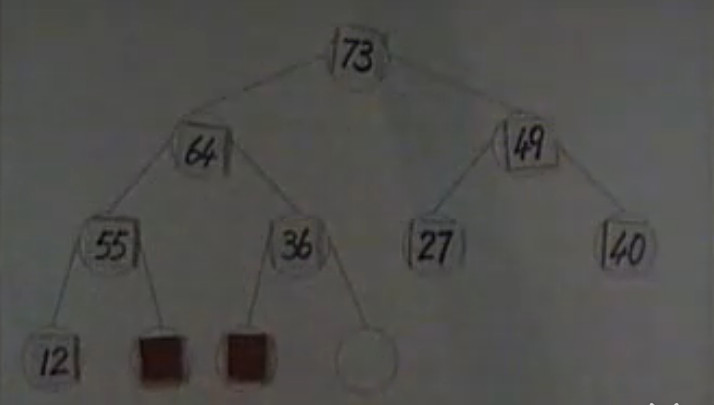 73
64 49
55 36 27 40
12